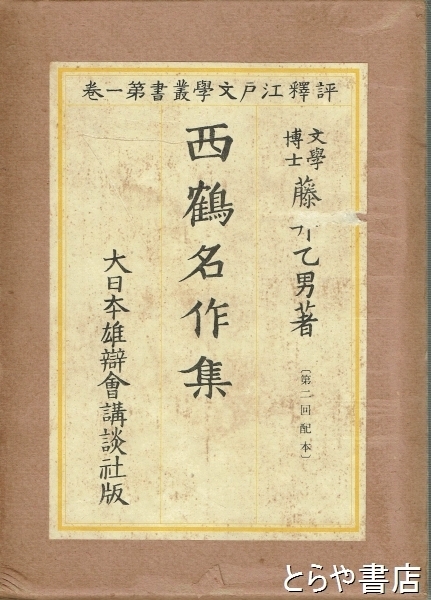 評釋江戸文學叢書第一卷
文學博士 藤 乙男著
〔第二回配本〕
西鶴名作集
大日本雄辯會講談社版
とらや書店